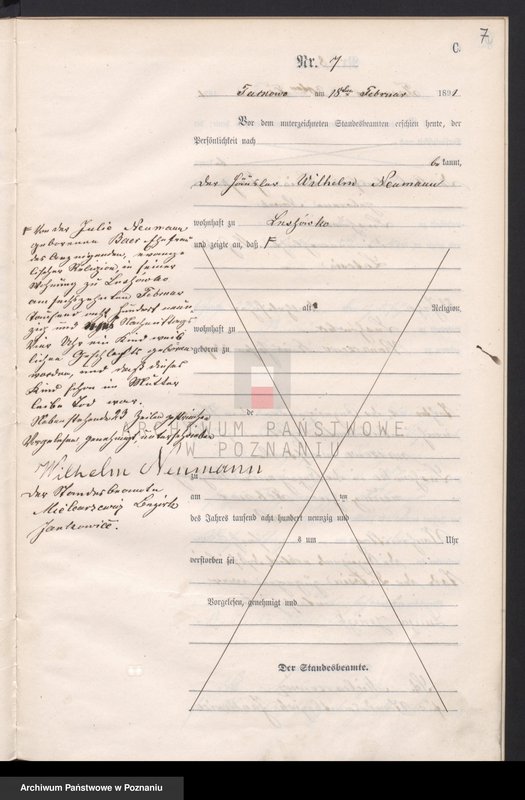 7
C.
Nr. 7
Tarnowo am 18ten Februar 1891
Vor dem unterzeichneten Standesbeamten erschien heute, der
Persönlichkeit nach
bekannt,
der Häusler Wilhelm Neumann
wohnhaft zu
und zeigte an, daß F
F Von der Julie Neumann
geborenen Baer, Ehefrau
des Anzeigenden, evange-
lischer Religion, in seiner
Wohnung zu
am sechszehnten Februar
tausend acht hundert neun-
zig und eins Nachmittags
vier Uhr ein Kind weib-
lichen Geschlechts geboren
worden, und daß dieses
Kind schon im Mutter
leibe tod war.
Nebenstehende 23 Zeilen gestrichen
Vorgelesen, genehmigt, unterschrieben
Wilhelm Neumann
Der Standesbeamte
Bezirk
Jankowice.
alt
Religion,
wohnhaft zu
geboren zu
de
zu
am ten
des Jahres tausend acht hundert neunzig und
s um Uhr
verstorben sei
Vorgelesen, genehmigt und
Der Standesbeamte.
ARCHIWUM PAŃSTWOWE
W POZNANIU
Archiwum Państwowe w Poznaniu